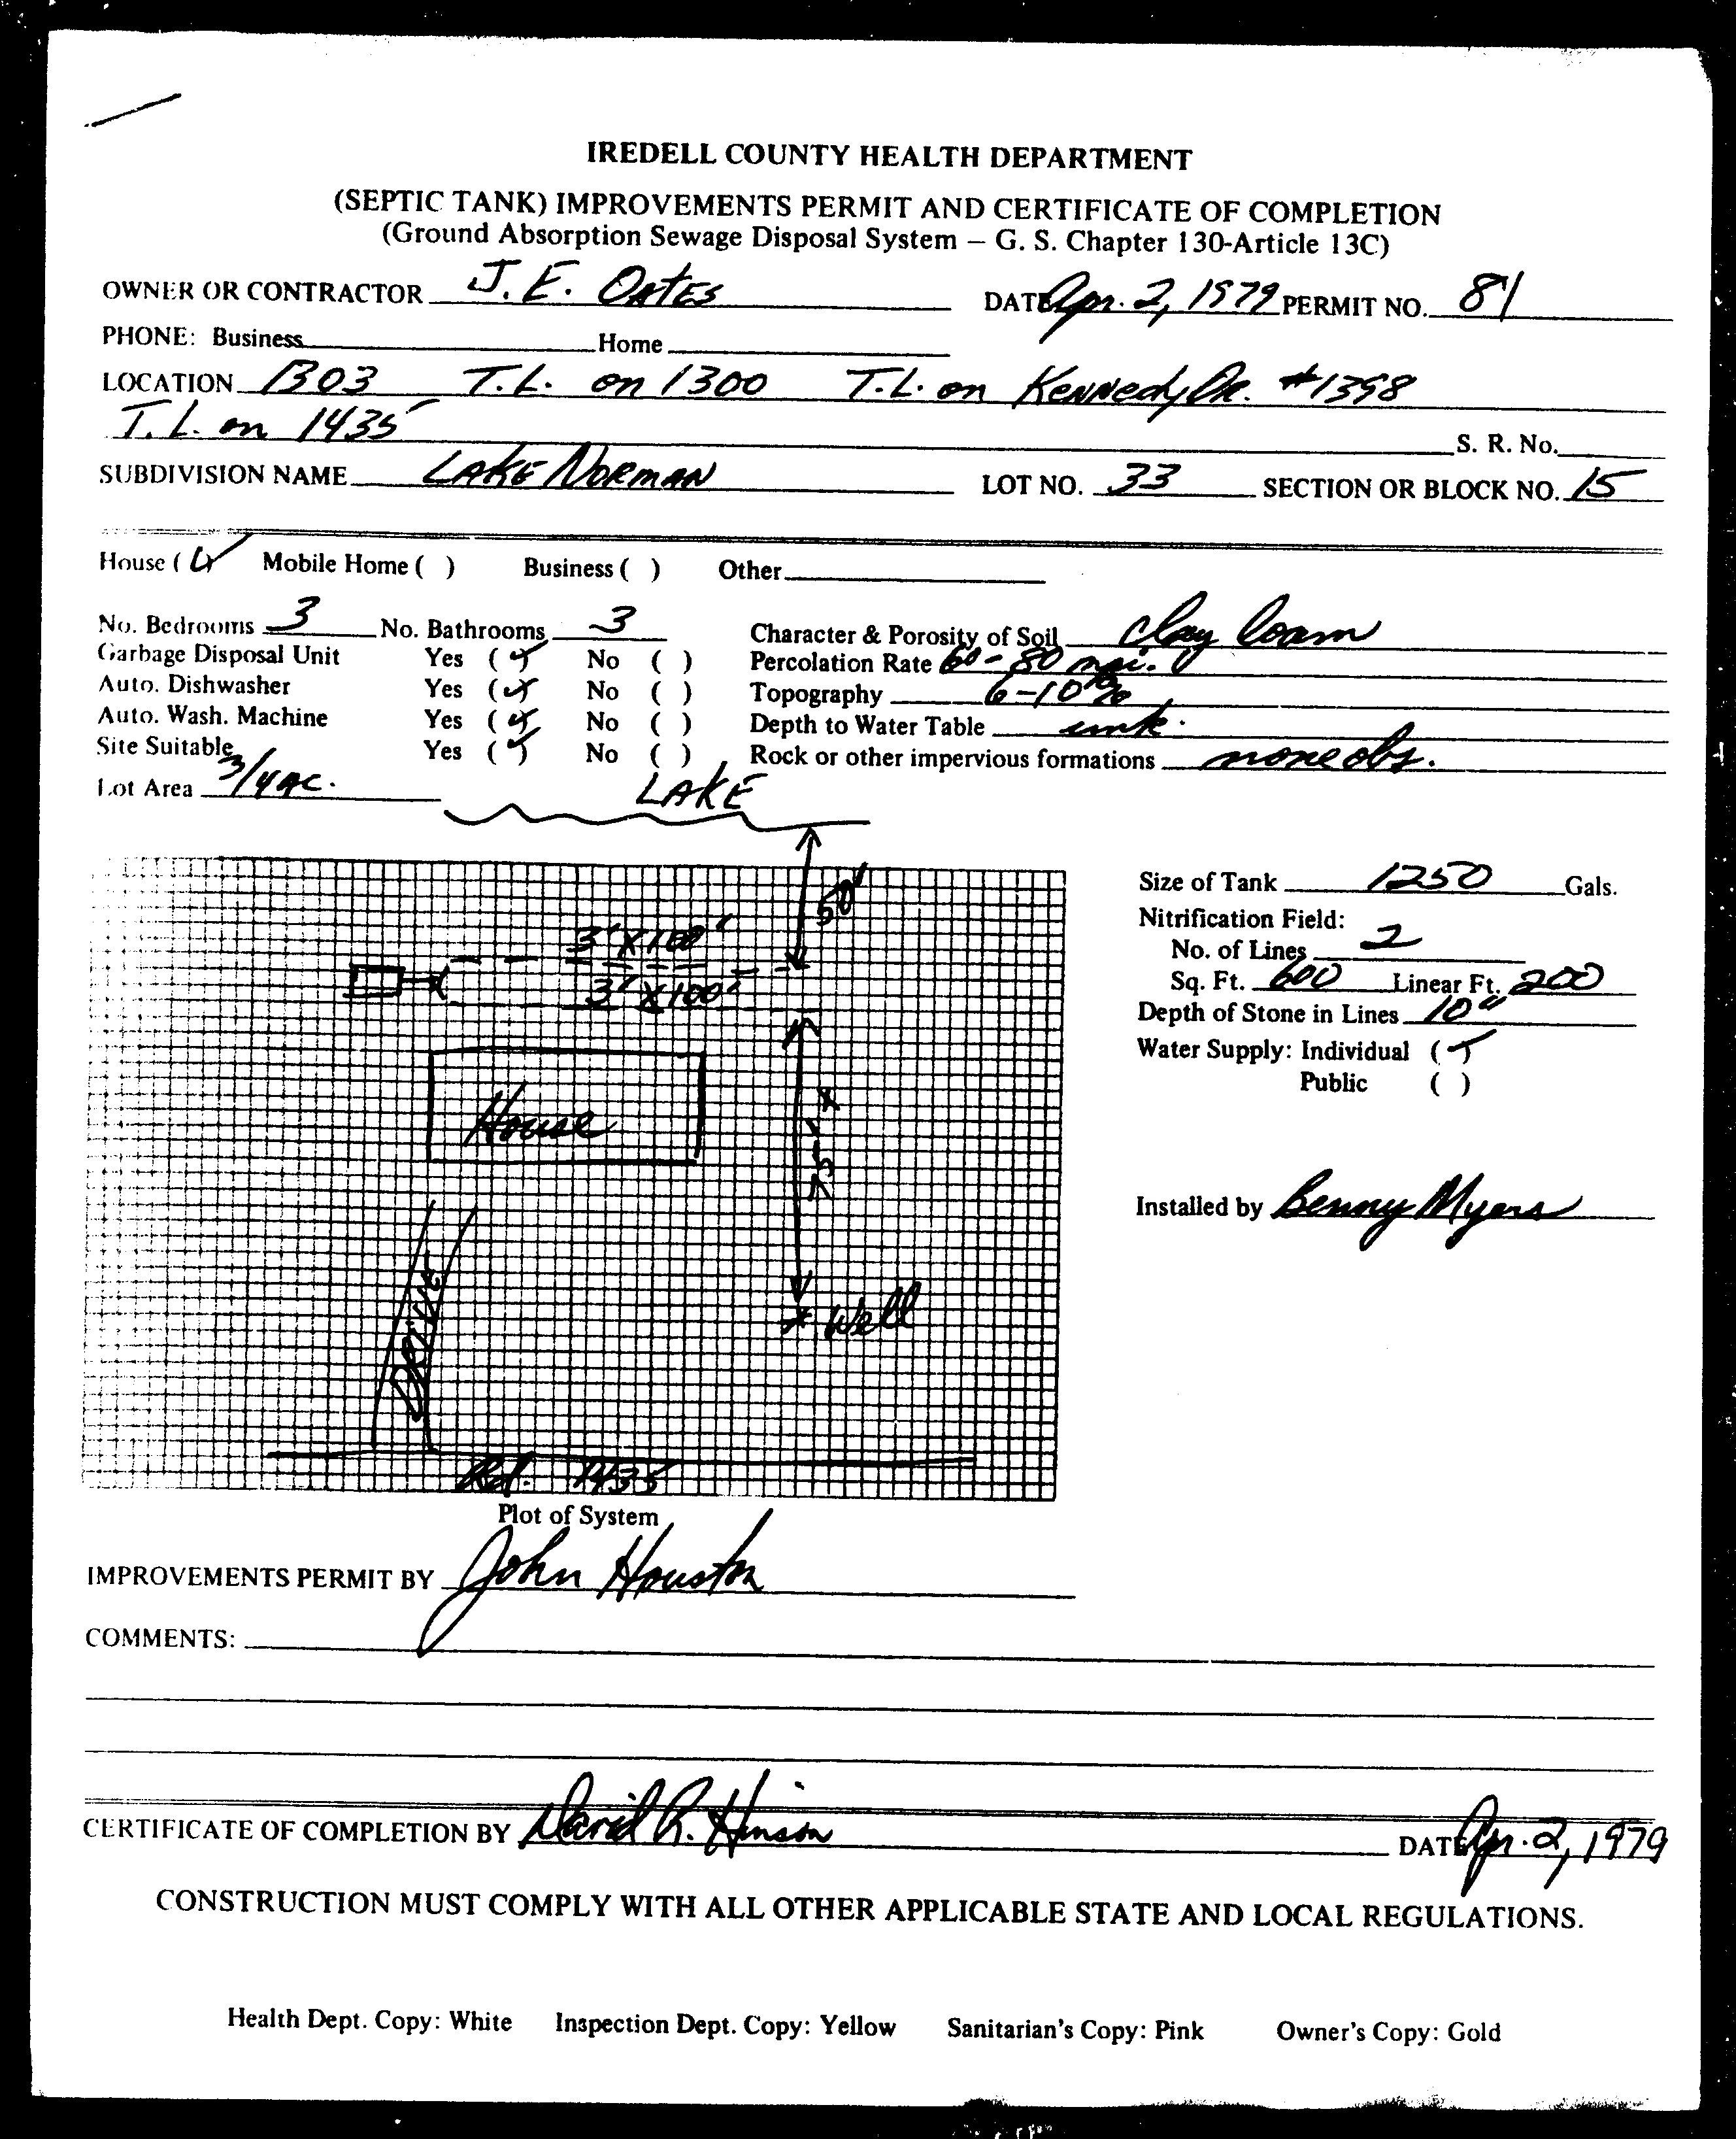 IREDELL COUNTY HEALTH DEPARTMENT
(SEPTIC TANK) IMPROVEMENTS PERMIT AND CERTIFICATE OF COMPLETION
(Ground Absorption Sewage Disposal System – G. S. Chapter 130-Article 13C)
OWNER OR CONTRACTOR J. E. OATES DATE Apr. 2, 1979 PERMIT NO. 81
PHONE: Business Home
LOCATION 1303 T.L. on 1300 T.L. on Kennedy Dr. #1398
T.L. on 1435 S. R. No.
SUBDIVISION NAME LAKE NORMAN LOT NO. 33 SECTION OR BLOCK NO. 15
House ( ✓ ) Mobile Home ( ) Business ( ) Other
No. Bedrooms 3 No. Bathrooms 3 Character & Porosity of Soil clay loam
Garbage Disposal Unit Yes (✓) No ( ) Percolation Rate 60-80 mpi.
Auto. Dishwasher Yes (✓) No ( ) Topography 6-10%
Auto. Wash. Machine Yes (✓) No ( ) Depth to Water Table unk.
Site Suitable Yes (✓) No ( ) Rock or other impervious formations none obs.
Lot Area 3/4 AC.
LAKE
50'
3' X 100'
3' X 100'
House
75'
DRIVE
* Well
Rd. 1435
Plot of System
Size of Tank 1250 Gals.
Nitrification Field:
No. of Lines 2
Sq. Ft. 600 Linear Ft. 200
Depth of Stone in Lines 10"
Water Supply: Individual (✓)
Public ( )
Installed by Benny Myers
IMPROVEMENTS PERMIT BY John Houston
COMMENTS:
CERTIFICATE OF COMPLETION BY David R. Hinson DATE Apr. 2, 1979
CONSTRUCTION MUST COMPLY WITH ALL OTHER APPLICABLE STATE AND LOCAL REGULATIONS.
Health Dept. Copy: White Inspection Dept. Copy: Yellow Sanitarian's Copy: Pink Owner's Copy: Gold